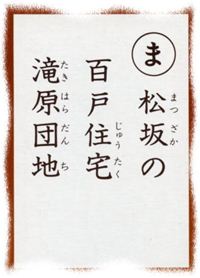 ま
松坂の
百戸住宅
滝原団地
まつざか
じゅうたく
たきはらだんち